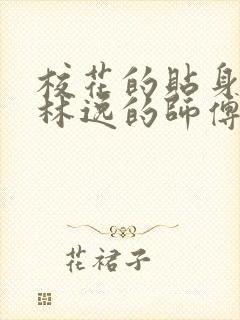 校花的貼身
林逸的師傅
花裙子